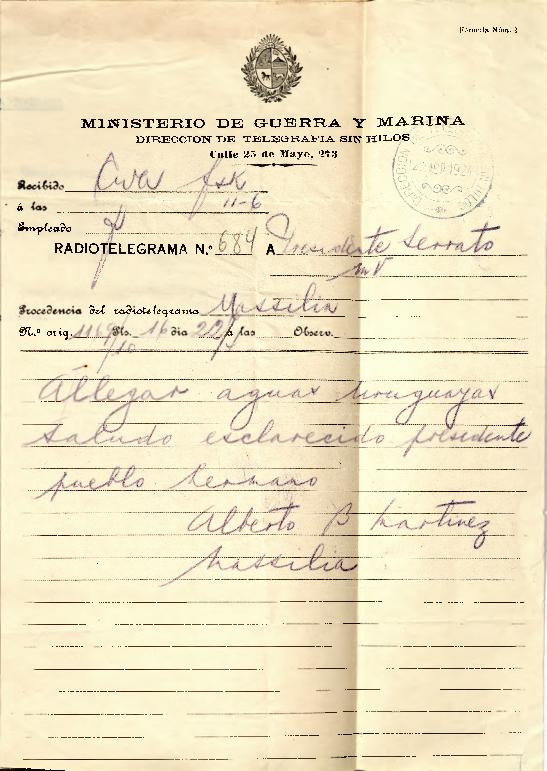 Formula Núm. 2
MINISTERIO DE GUERRA Y MARINA
DIRECCION DE TELEGRAFIA SIN HILOS
Calle 25 de Mayo, 273
Recibido Cwa fsk
á las 11-6
Empleado
RADIOTELEGRAMA N.º 684 A Presidente Serrato
mv
Procedencia del radiotelegrama Massilia
N.º orig. 1169 Ps. 16 dia 22 á las Observ.
Allegar aguas Uruguayas
saludo esclarecido presidente
pueblo hermano
Alberto B Martinez
Massilia